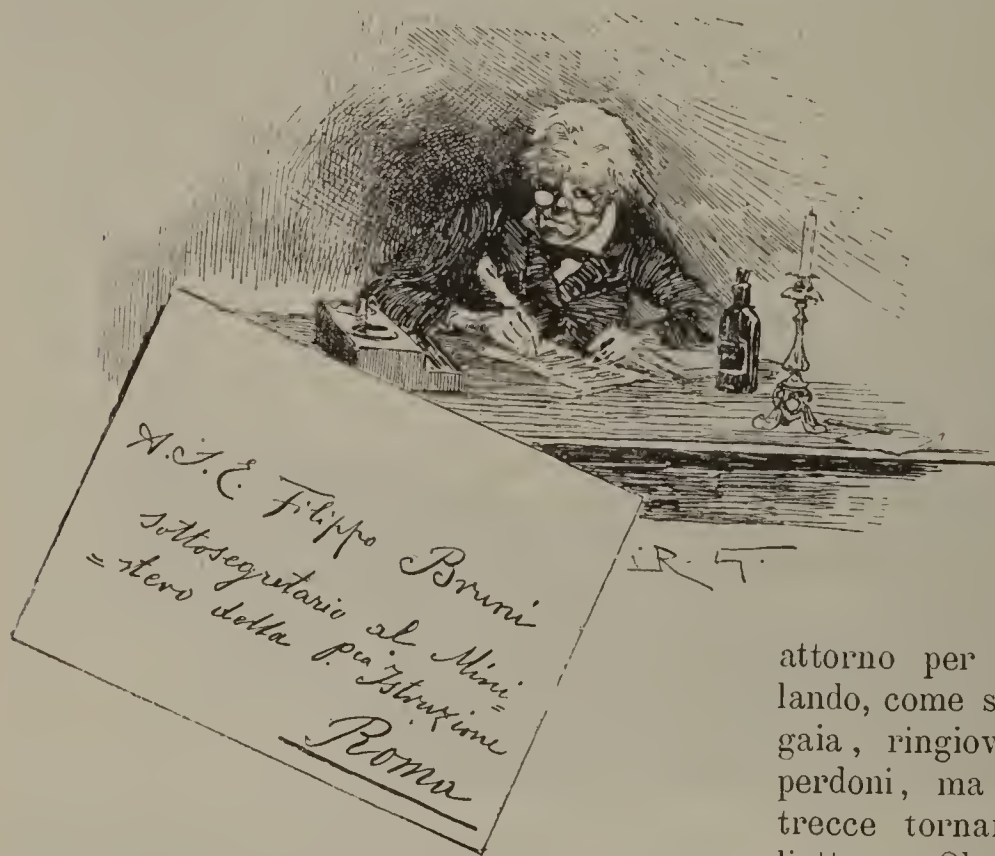 A. S. E. Filippo Bruni
sottosegretario al Mini=
=stero della P.ca Istruzione
Roma
attorno per
lando, come s
gaia, ringiov
perdoni, ma
trecce torna